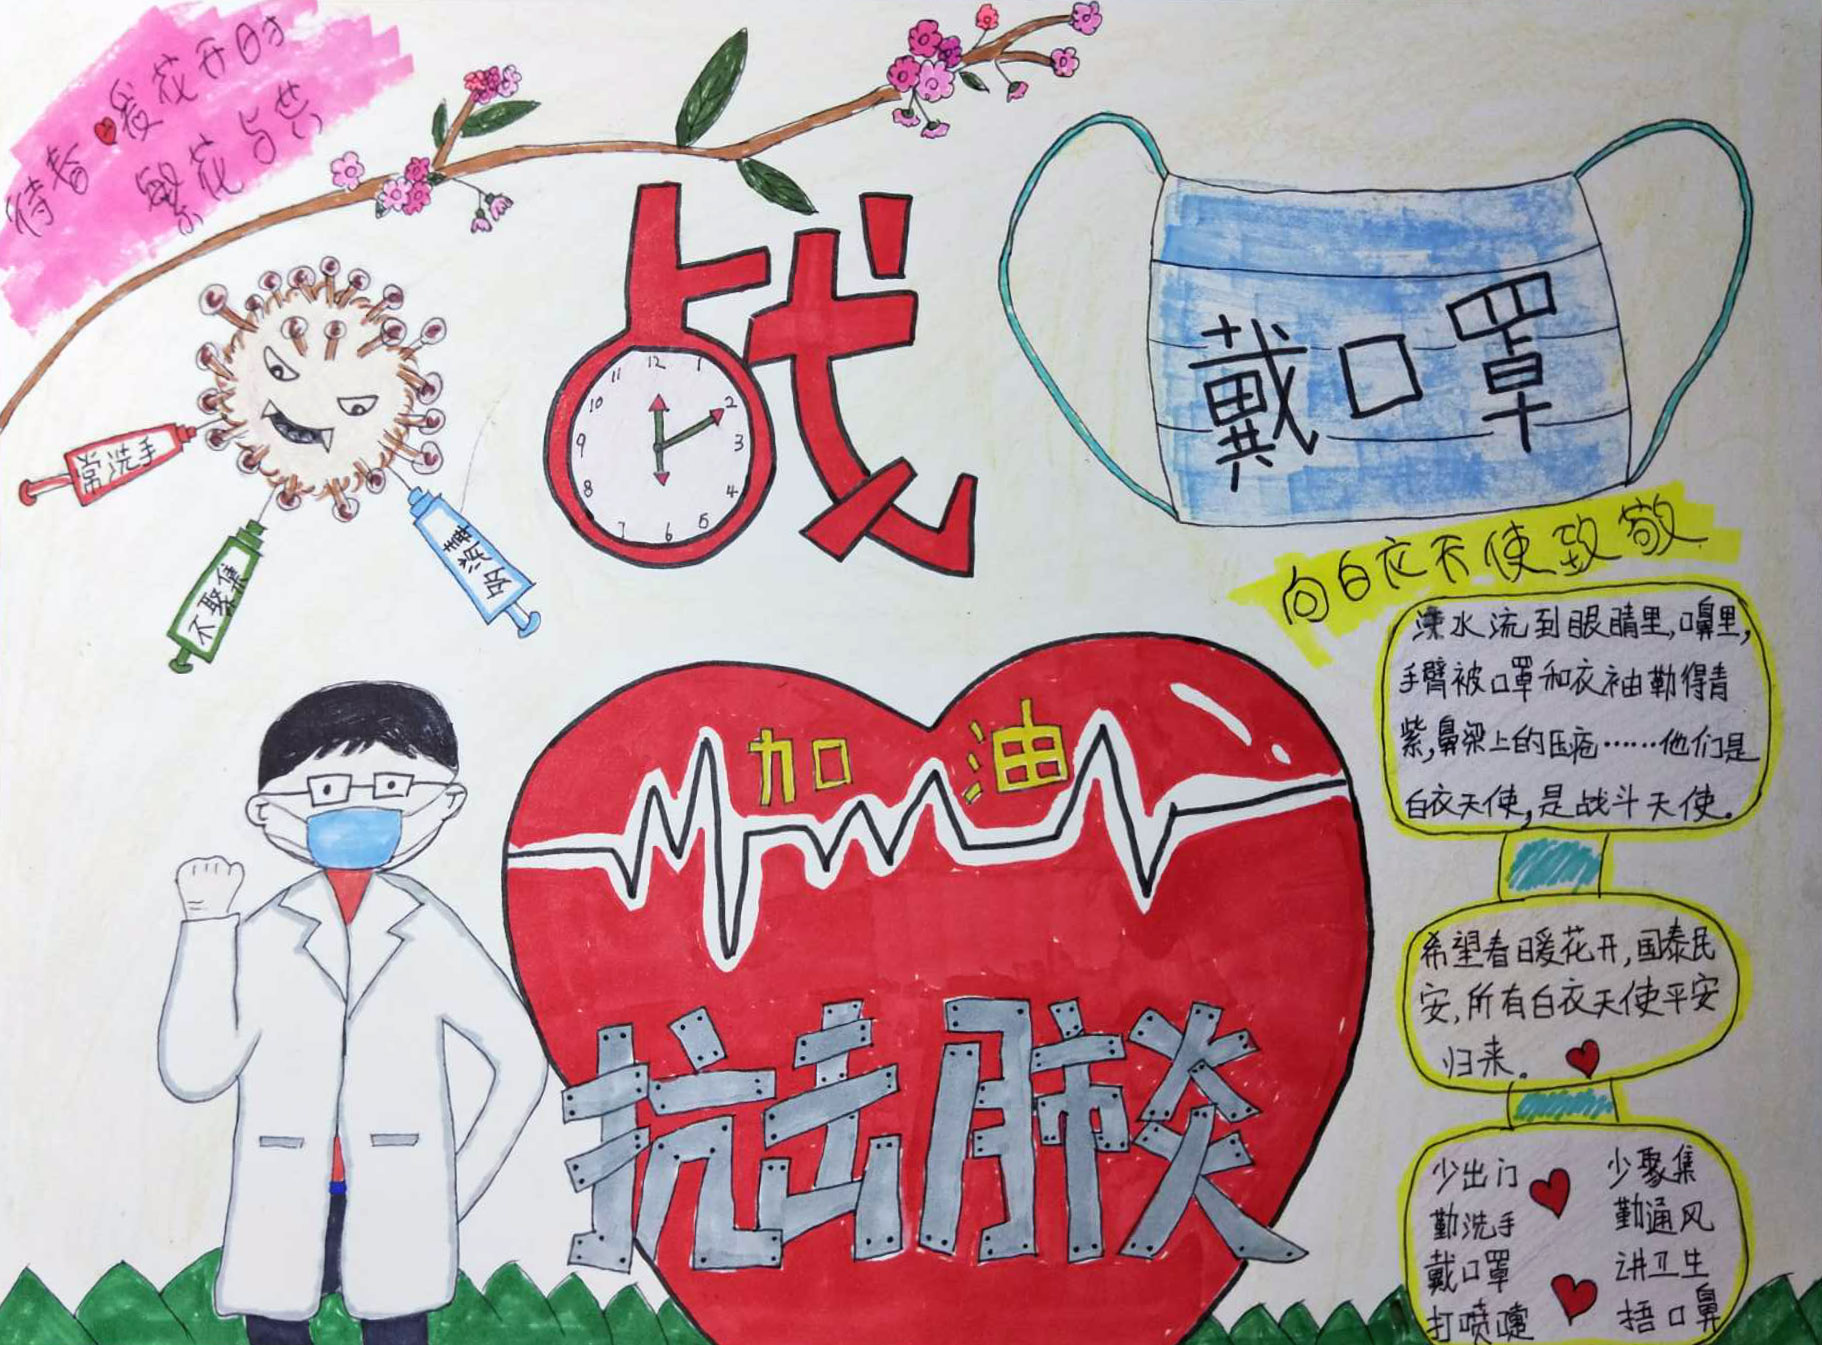 待春暖花开时
繁花与共
战
12
1
2
3
4
5
6
7
8
9
10
11
戴口罩
常洗手
不聚集
要消毒
向白衣天使致敬
加油
抗击肺炎
汗水流到眼睛里,鼻里,
手臂被口罩和衣袖勒得青
紫,鼻梁上的压疮……他们是
白衣天使,是战斗天使。
希望春日暖花开,国泰民
安,所有白衣天使平安
归来。
少出门 少聚集
勤洗手 勤通风
戴口罩 讲卫生
打喷嚏 捂口鼻